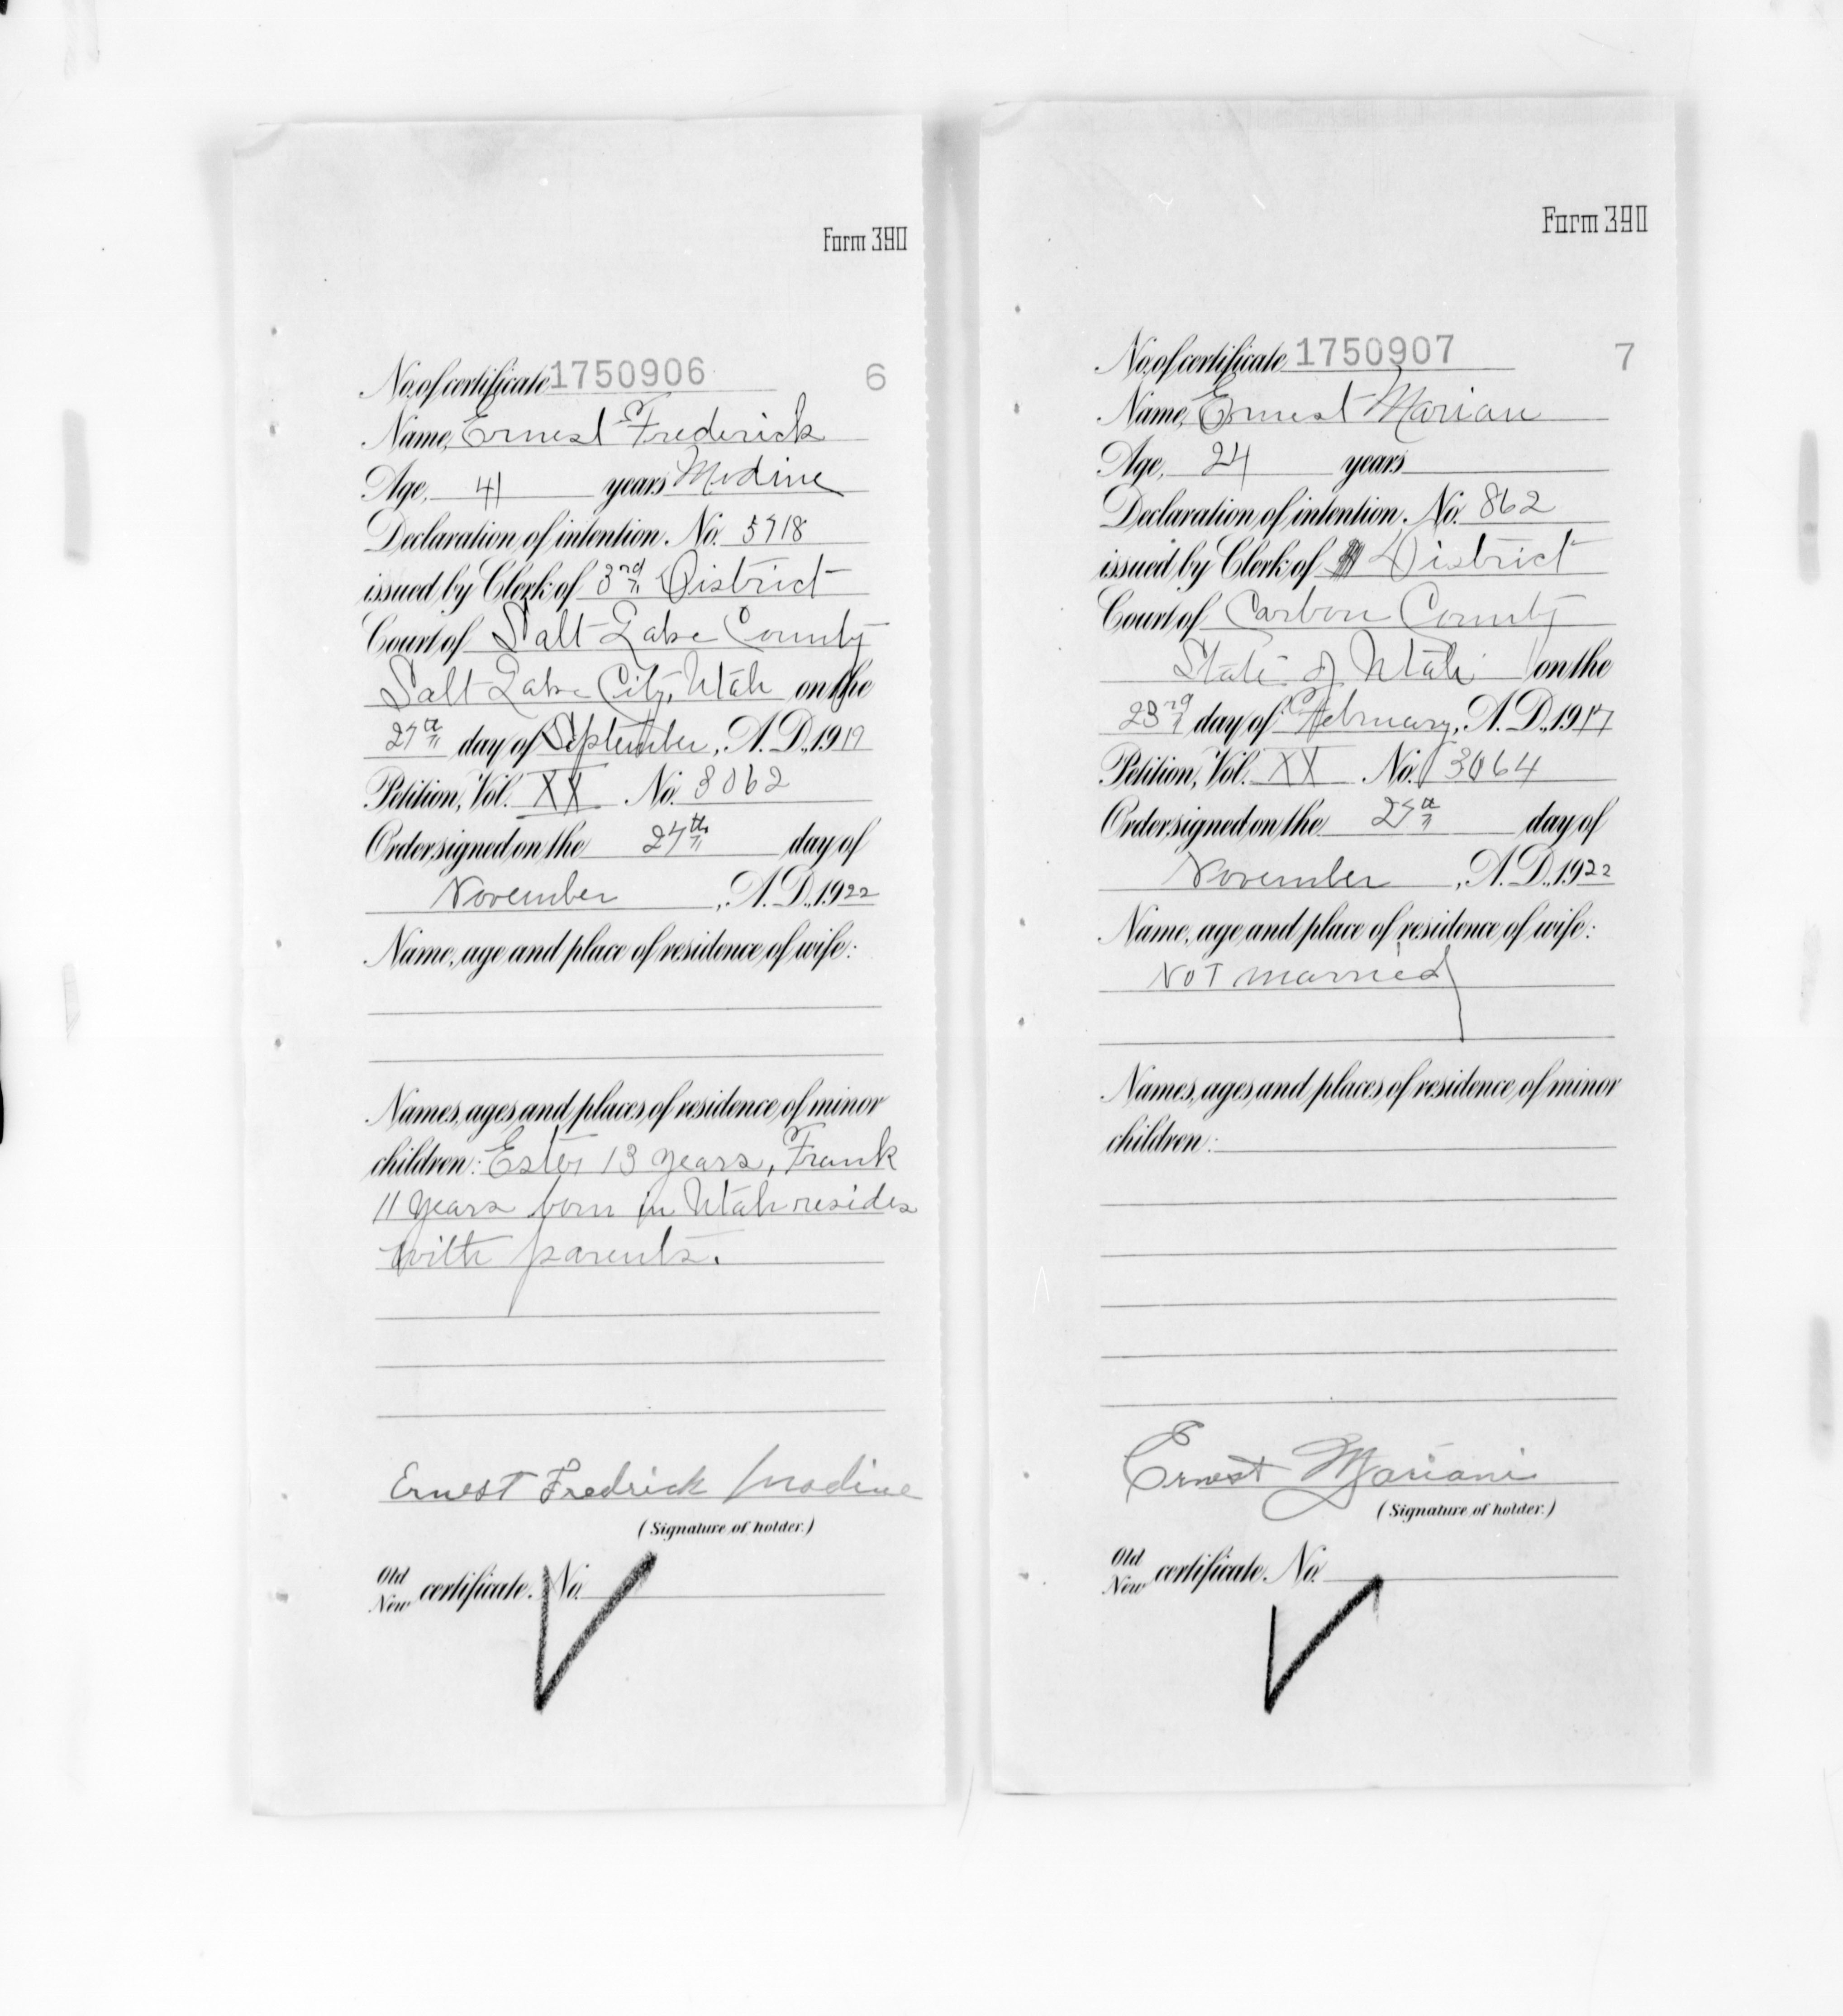 Form 390
No. of certificate 1750906 6
Name, Ernest Frederick
Age, 41 years Modine
Declaration of intention. No. 5718
issued by Clerk of 3rd District
Court of Salt Lake County
Salt Lake City, Utah on the
27th day of September, A.D., 1919
Petition, Vol. XX No. 3062
Order signed on the 27th day of
November, A.D., 1922
Name, age and place of residence of wife:
Names, ages and places of residence of minor
children: Ester 13 years, Frank
11 years born in Utah resides
with parents.
Ernest Fredrick Modine
(Signature of holder.)
Old
New certificate. No.
Form 390
No. of certificate 1750907 7
Name, Ernest Mariani
Age, 24 years
Declaration of intention. No. 862
issued by Clerk of District
Court of Carbon County
State of Utah on the
23rd day of February, A.D., 1917
Petition, Vol. XX No. 3064
Order signed on the 27th day of
November, A.D., 1922
Name, age and place of residence of wife:
Not married
Names, ages and places of residence of minor
children:
Ernest Mariani
(Signature of holder.)
Old
New certificate. No.